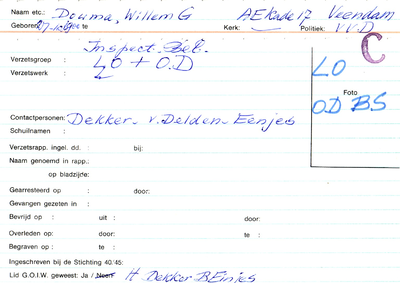 Naam etc.: Douma, Willem G AEKade 17 Veendam
Geboren te Kerk: Politiek: V.V.D
Inspect. Bel. C
Verzetsgroep : LO + O.D LO
Verzetswerk : OD BS
Foto
Contactpersonen: Dekker - v. Delden - Eenjes
Schuilnamen :
Verzetsrapp. ingel. dd. : bij:
Naam genoemd in rapp.:
op bladzijde:
Gearresteerd op : door:
Gevangen gezeten in :
Bevrijd op : uit : door:
Overleden op : door: te :
Begraven op : te :
Ingeschreven bij de Stichting 40/45:
Lid G.O.I.W. geweest: Ja / Neen H Dekker B Einjes